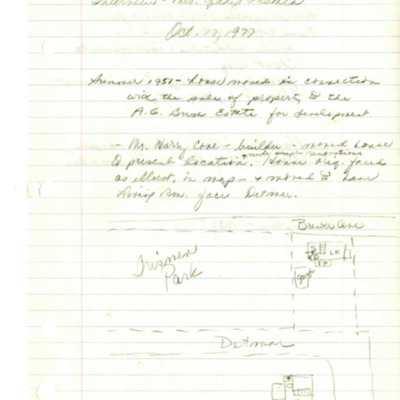 Interview - Mrs.
Oct. 17, 1977
Summer 1951 - house moved in connection
with the sale of property to the
A.G. Bush Estate for development
- Mr. Harry Cone - builder - moved house
& made ample renovations
to present location. - House orig. faced
as illust. in map - & moved to have
Living Rm. face Detmar.
Brewer Ave
Trismen
Park
Detmar